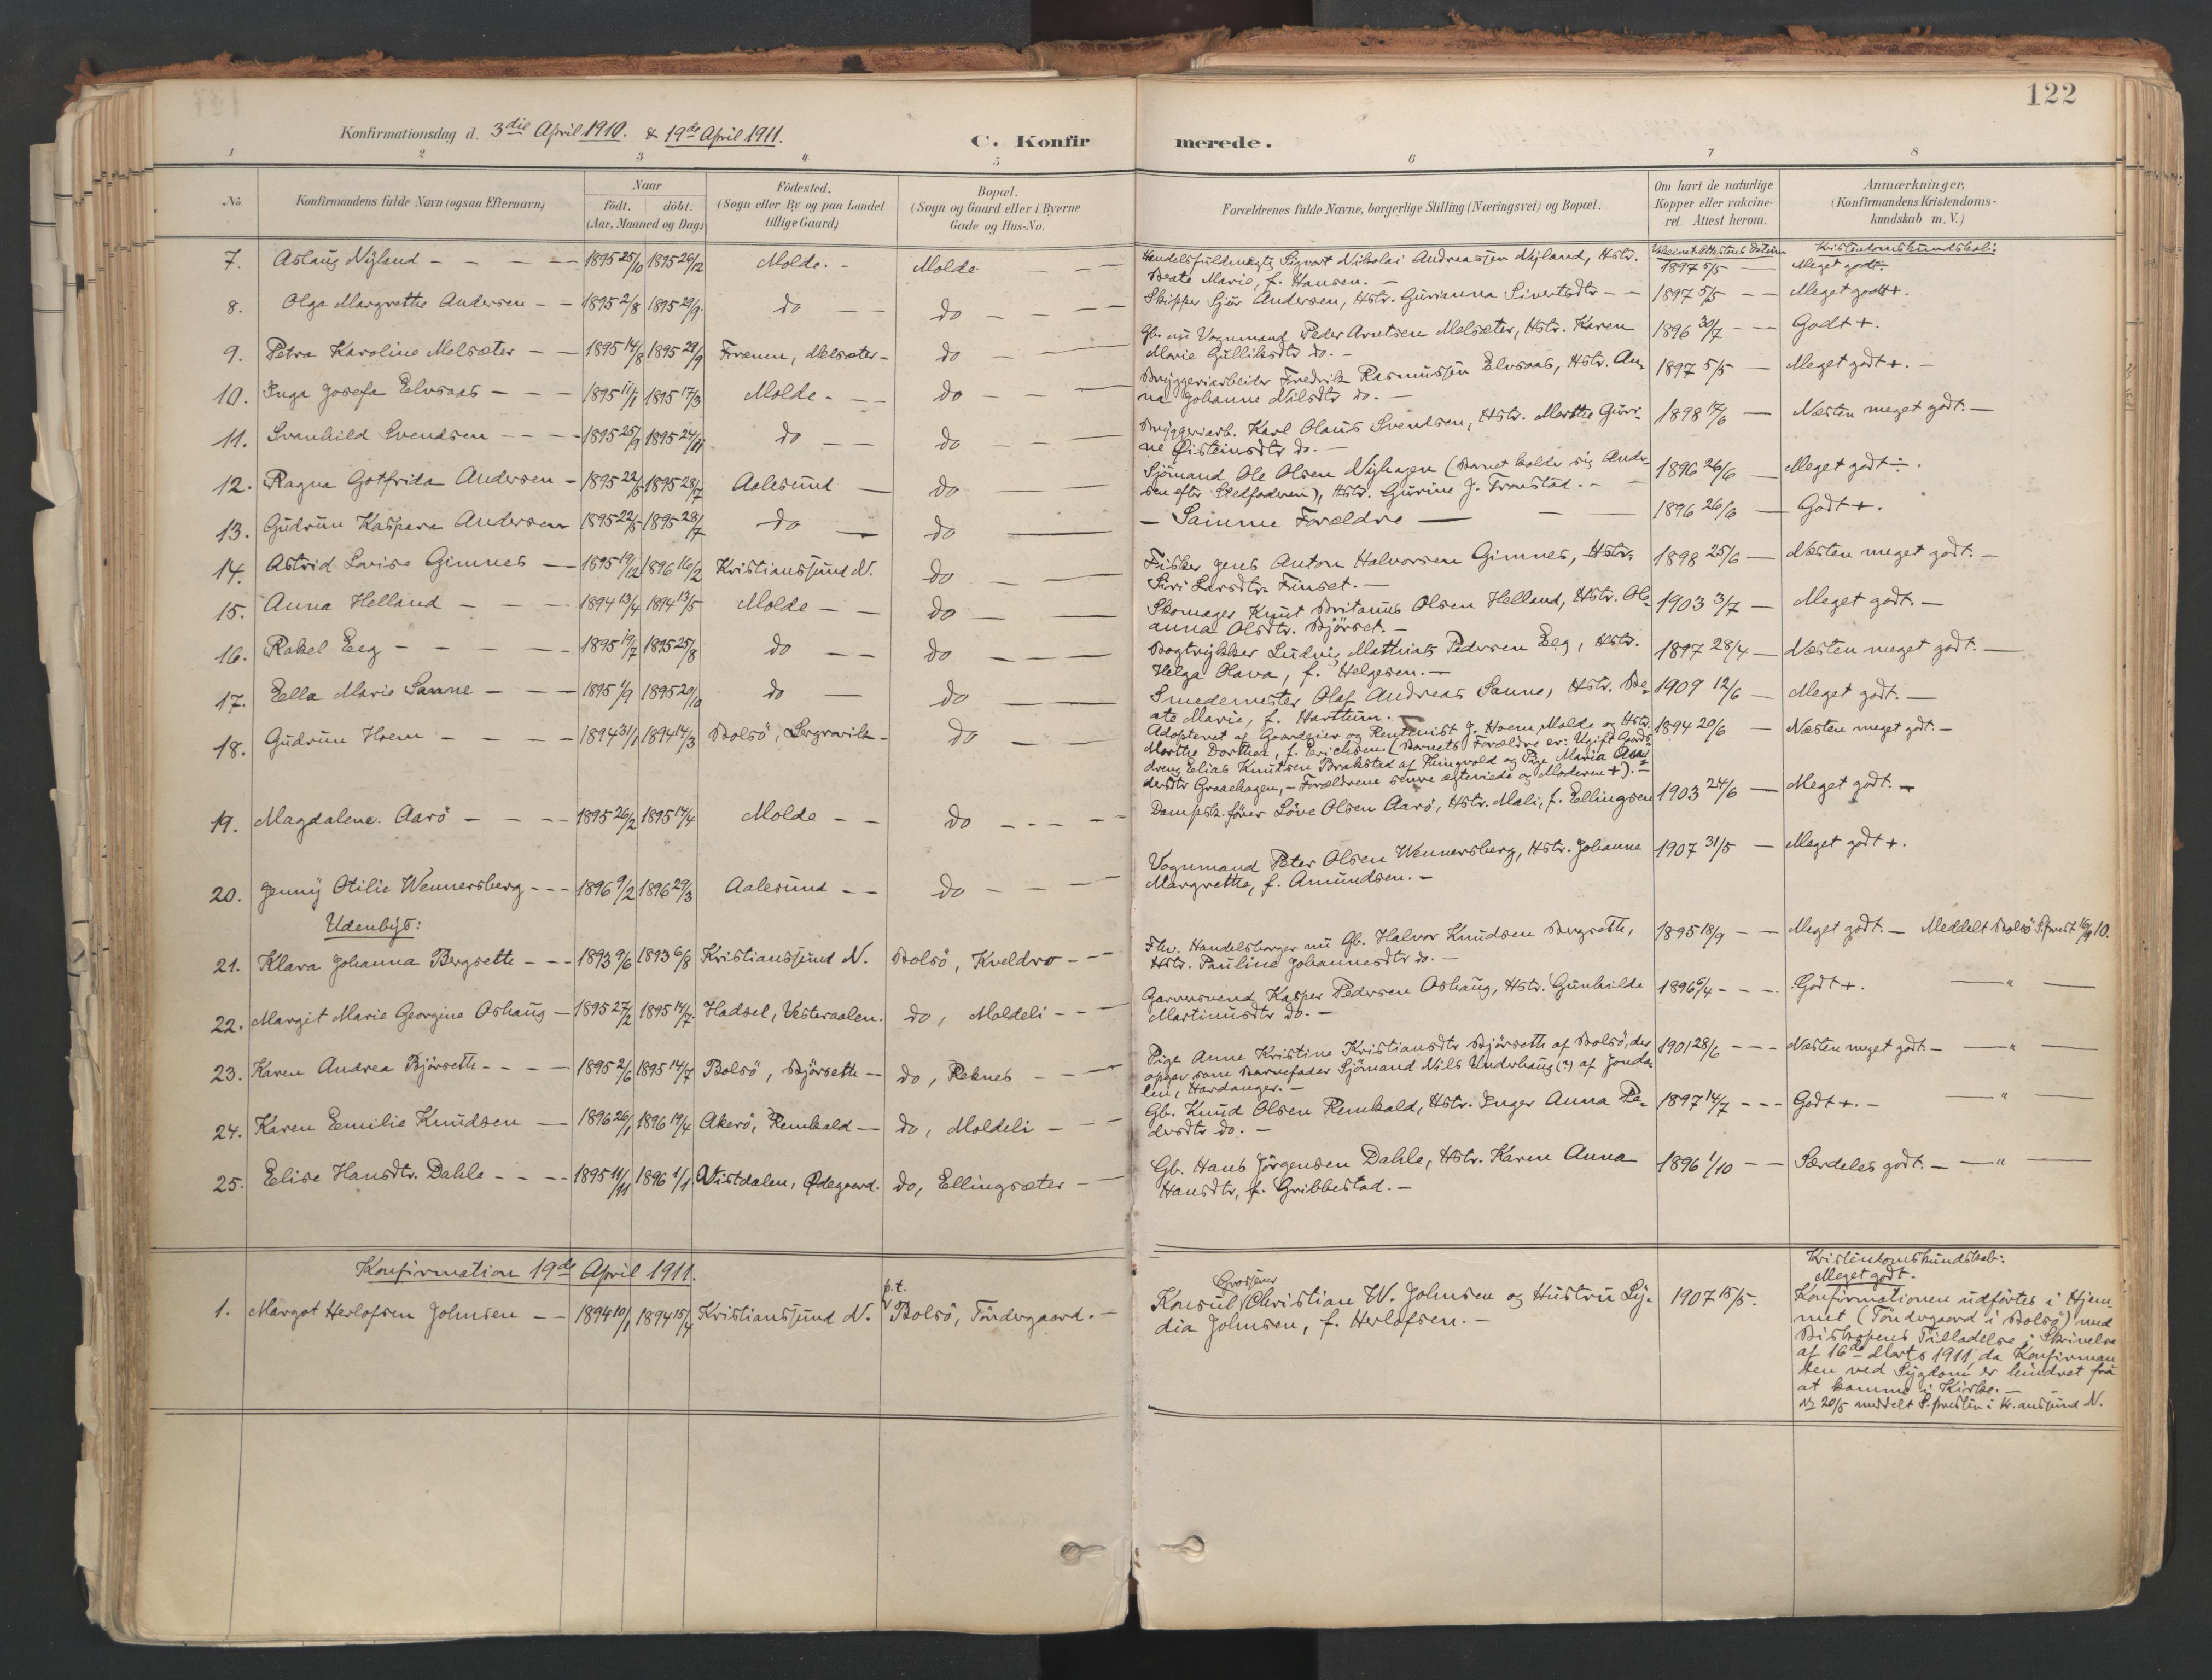 122
Konfirmationsdag d. 3die April 1910. & 19de April 1911.
C. Konfirmerede.
1 2 3 4 5 6 7 8
No
Konfirmandens fulde Navn (ogsaa Efternavn)
Naar
født. døbt.
(Aar, Maaned og Dag)
Födested.
(Sogn eller By og paa Landet
tillige Gaard)
Bopæl.
(Sogn og Gaard eller i Byerne
Gade og Hus-No.
Forældrenes fulde Navne, borgerlige Stilling (Næringsvei) og Bopæl.
Om havt de naturlige
Kopper eller vakcine-
ret. Attest herom.
Anmærkninger,
(Konfirmandens Kristendoms-
kundskab m. V.)
Kristendomskundskab:
7. Aslaug Nyland 1895 25/10 1895 26/12 Molde. Molde Handelsfuldmægtg Sigvart Nikolai Andreassen Nyland, Hstr. 1897 5/5 Meget godt ÷
Beate Marie, f. Hansen.
8. Olga Margrethe Andersen 1895 2/8 1895 29/9 do do Skipper Sjur Andersen, Hstr. Gurianna Sivertsdtr 1897 5/5 Meget godt +.
9. Petra Karoline Melsæter 1895 14/8 1895 29/9 Frænen, Melsæter do Gb. nu Vognmand Peder Arntsen Melsæter, Hstr. Karen 1896 30/7 Godt +.
Marie Gulliksdtr do.
10. Inga Josefa Elvsaas 1895 11/1 1895 17/3 Molde do Bryggeriarbeider Fredrik Rasmussen Elvsaas, Hstr. An- 1897 5/5 Meget godt +.
na Johanne Nilsdtr do.
11. Svanhild Svendsen 1895 25/9 1895 24/11 do do Bryggeriarb. Karl Olaus Svendsen, Hstr. Marthe Guri- 1898 17/6 Næsten meget godt.
ne Øisteinsdtr do.
12. Ragna Gotfrida Andersen 1895 22/5 1895 28/7 Aalesund do Sjömand Ole Olsen Nyhagen (Barnet kalder sig Ander- 1896 26/6 Meget godt ÷.
sen efter Stedfaderen), Hstr. Gurine J. Tronstad.
13. Gudrun Kaspara Andersen 1895 22/5 1895 28/7 do do Samme Forældre 1896 26/6 Godt +.
14. Astrid Lovise Gimnes 1895 19/12 1896 16/2 Kristianssund N. do Fisker Jens Anton Halvorsen Gimnes, Hstr. 1898 25/6 Næsten meget godt.
Siri Larsdtr Finset.
15. Anna Helland 1894 13/4 1894 13/5 Molde do Skomager Knut Britanus Olsen Helland, Hstr. Ole- 1903 3/7 Meget godt.
anna Olsdtr. Björset.
16. Rakel Eeg 1895 19/7 1895 25/8 do do Bogtrykker Ludvig Mathias Pedersen Eeg, Hstr. 1897 28/4 Næsten meget godt.
Helga Olava, f. Helgesen.
17. Ella Marie Sanne 1895 1/9 1895 20/10 do do Smedemester Olaf Andreas Sanne, Hstr. Be- 1909 12/6 Meget godt.
ate Marie, f. Harthun.
18. Gudrun Hoem 1894 31/1 1894 14/3 Bolsö, Bergsvik do Adopteret af Gaardeier og Rentenist J. Hoem, Molde og Hstr. 1894 20/6 Næsten meget godt.
Marthe Dorthea, f. Erichsen. (Barnets Forældre er: Ugift Gaards-
dreng Elias Knutsen Brakstad af Thingvold og Pige Maria An-
dersdtr Graaehagen, Forældrene senere ægteviede og Moderen +).
19. Magdalene Aarö 1895 26/2 1895 14/4 Molde do Dampsk.förer Löve Olsen Aarö, Hstr. Mali, f. Ellingsen 1903 24/6 Meget godt.
20. Jenny Otilie Wennersberg 1896 9/2 1896 29/3 Aalesund do Vognmand Peter Olsen Wennersberg, Hstr. Johanne 1907 31/5 Meget godt +.
Margrethe, f. Amundsen.
Udenbys:
21. Klara Johanna Bergseth 1893 9/6 1893 6/8 Kristianssund N. Bolsö, Kveldro Fhv. Handelsborger nu Gb. Halvor Knudsen Bergseth, 1895 18/9 Meget godt. Meddelt Bolsö S.prest 16/9 10.
Hstr. Pauline Johannesdtr do.
22. Margit Marie Georgine Oshaug 1895 27/2 1895 14/7 Hadsel, Vesteraalen. do, Moldeli Garversvend Kasper Pedersen Oshaug, Hstr. Gunhilde 1896 9/4 Godt +. — " —
Martinusdtr do.
23. Karen Andrea Björseth 1895 2/6 1895 14/7 Bolsö, Björseth do, Reknes Pige Anne Kristine Kristiansdtr Björseth af Bolsö, der 1901 28/6 Næsten meget godt — " —
opgav som Barnefader Sjömand Nils Underhaug (?) af Jonda-
len, Hardanger.
24. Karen Emilie Knudsen 1896 26/1 1896 19/4 Akerö, Remkald do, Moldeli Gb. Knud Olsen Remkald, Hstr. Inger Anna Pe- 1897 14/7 Godt +. — " —
dersdtr do.
25. Elise Hansdtr. Dahle 1895 11/11 1896 1/1 Vistdalen, Ødegaard. do, Ellingsæter Gb. Hans Jörgensen Dahle, Hstr. Karen Anna 1896 1/10 Særdeles godt. — " —
Hansdtr, f. Gribbestad.
Konfirmation 19de April 1911.
Kristendomskundskab:
Meget godt.
1. Margot Herlofsen Johnsen 1894 10/1 1894 15/4 Kristianssund N. p.t. Bolsö, Töndergaard. Grosserer Konsul Christian W. Johnsen og Hustru Ly- 1907 15/5.
dia Johnsen, f. Herlofsen.
Konfirmationen udførtes i Hjem-
met (Töndergaard i Bolsö) med
Biskopens Tilladelse i Skrivelse
af 16de Marts 1911, da Konfirman-
den ved Sygdom er hindret fra
at komme i Kirke.
20/5 meddelt S.presten i Kr.anssund N.